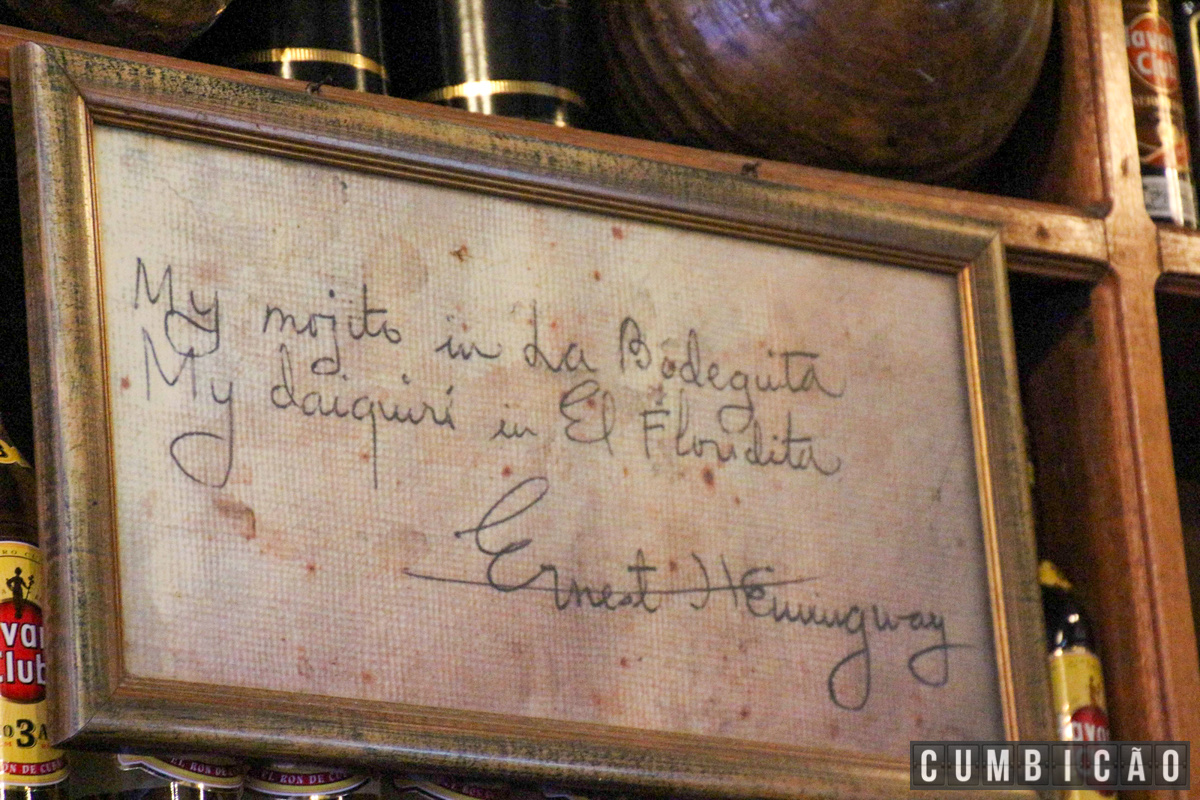 Havana
Club
My mojito in La Bodeguita
My daiquirí in El Floridita
Ernest Hemingway
Club
3
EL RON DE CUBA
EL RON DE CUBA
CUMBICÃO